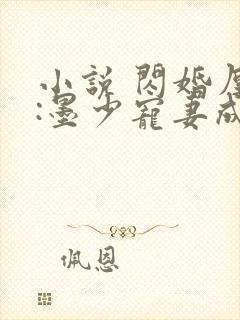 小說 閃婚
:墨少寵妻成
佩恩